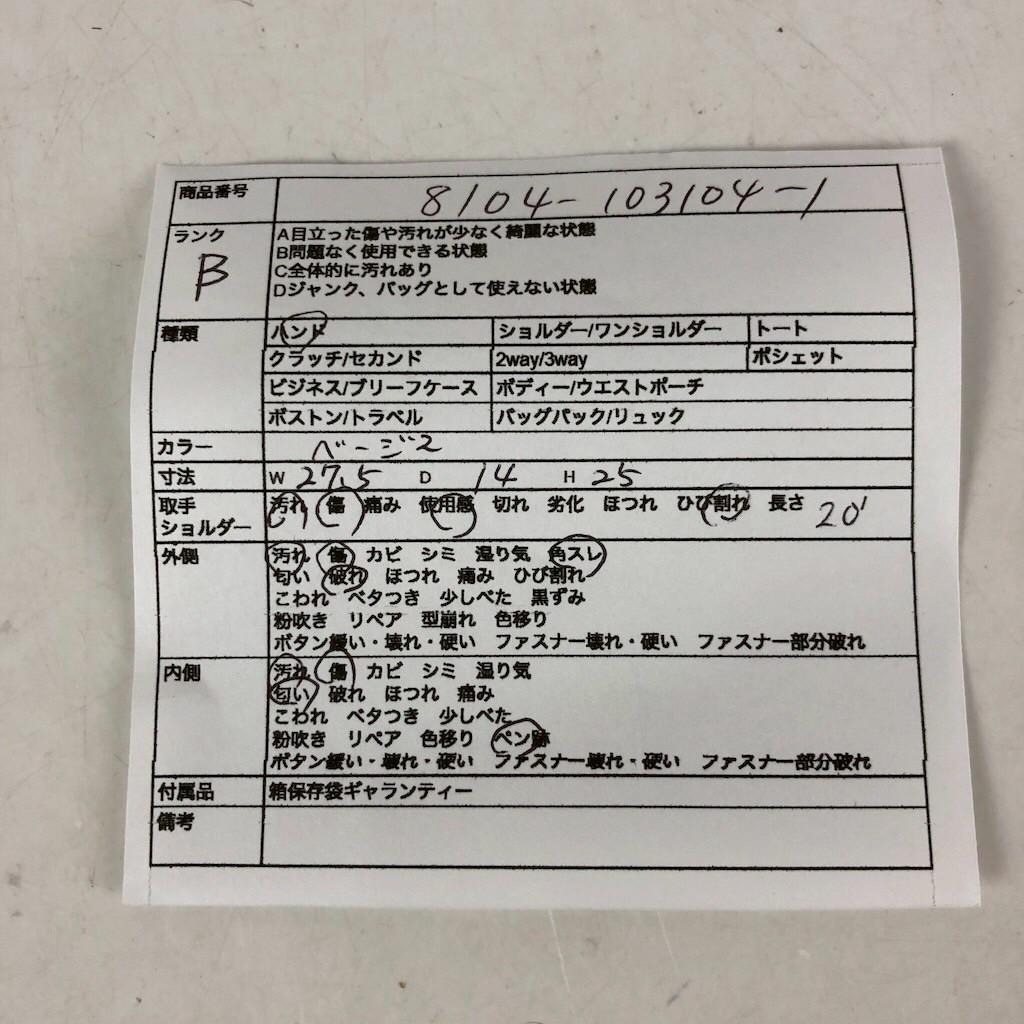 商品番号 8104-103104-1
ランク B
A目立った傷や汚れが少なく綺麗な状態
B問題なく使用できる状態
C全体的に汚れあり
Dジャンク、バッグとして使えない状態
種類 ハンド ショルダー/ワンショルダー トート
クラッチ/セカンド 2way/3way ポシェット
ビジネス/ブリーフケース ボディー/ウエストポーチ
ボストン/トラベル バッグパック/リュック
カラー ベージュ
寸法 W 27.5 D 14 H 25
取手 汚れ 傷 痛み 使用感 切れ 劣化 ほつれ ひび割れ 長さ 20
ショルダー
外側 汚れ 傷 カビ シミ 湿り気 角スレ
匂い 破れ ほつれ 痛み ひび割れ
こわれ ベタつき 少しべた 黒ずみ
粉吹き リペア 型崩れ 色移り
ボタン緩い・壊れ・硬い ファスナー壊れ・硬い ファスナー部分破れ
内側 汚れ 傷 カビ シミ 湿り気
匂い 破れ ほつれ 痛み
こわれ ベタつき 少しべた
粉吹き リペア 色移り ペン跡
ボタン緩い・壊れ・硬い ファスナー壊れ・硬い ファスナー部分破れ
付属品 箱保存袋ギャランティー
備考